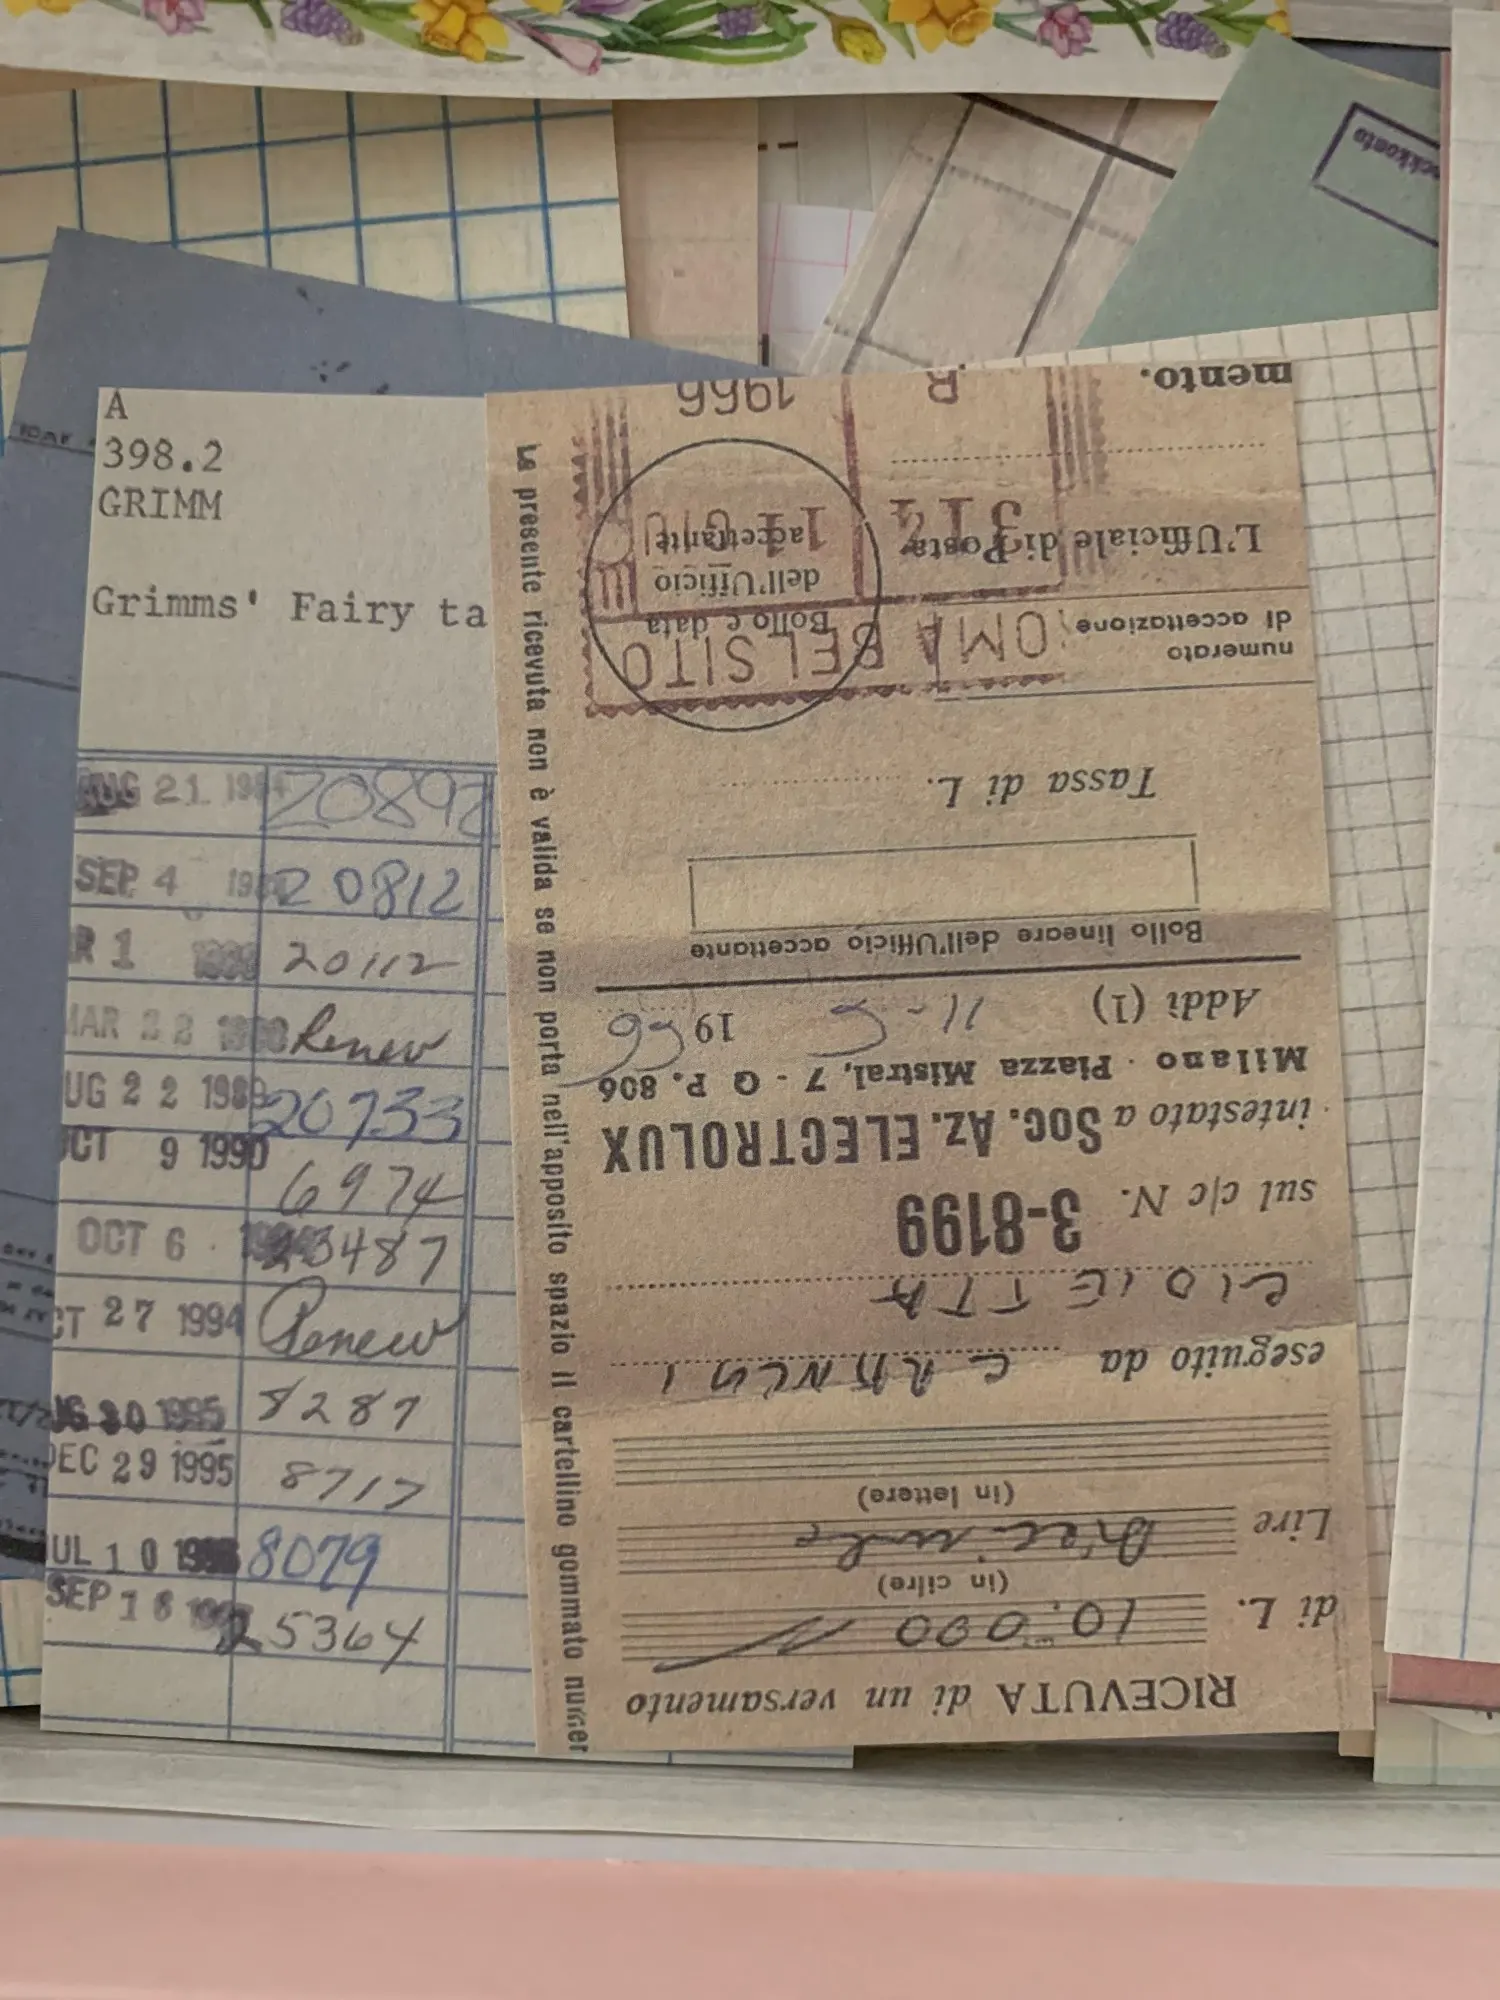 A
398.2
GRIMM
Grimms' Fairy ta
AUG 21 1984 20892
SEP 4 20812
R 1 20112
MAR 22 Renew
UG 22 1989 20733
OCT 9 1990 6974
OCT 6 23487
CT 27 1994 Renew
UG 30 1995 8287
DEC 29 1995 8717
UL 10 8079
SEP 18 25364
RICEVUTA di un versamento
di L. 10.000
(in cifre)
Lire Diecimila
(in lettere)
eseguito da
sul c/c N. 3-8199
intestato a Soc. Az. ELECTROLUX
Milano - Piazza Mistral, 7 - Q P. 806
Addì (1) 1966
Bollo lineare dell'Ufficio accettante
Tassa di L.
numerato
di accettazione
L'Ufficiale di Posta
Bollo e data
dell'Ufficio
accettante
OMA BELSITO
314
11 GIU
R
1966
mento.
La presente ricevuta non è valida se non porta nell'apposito spazio il cartellino gommato numer